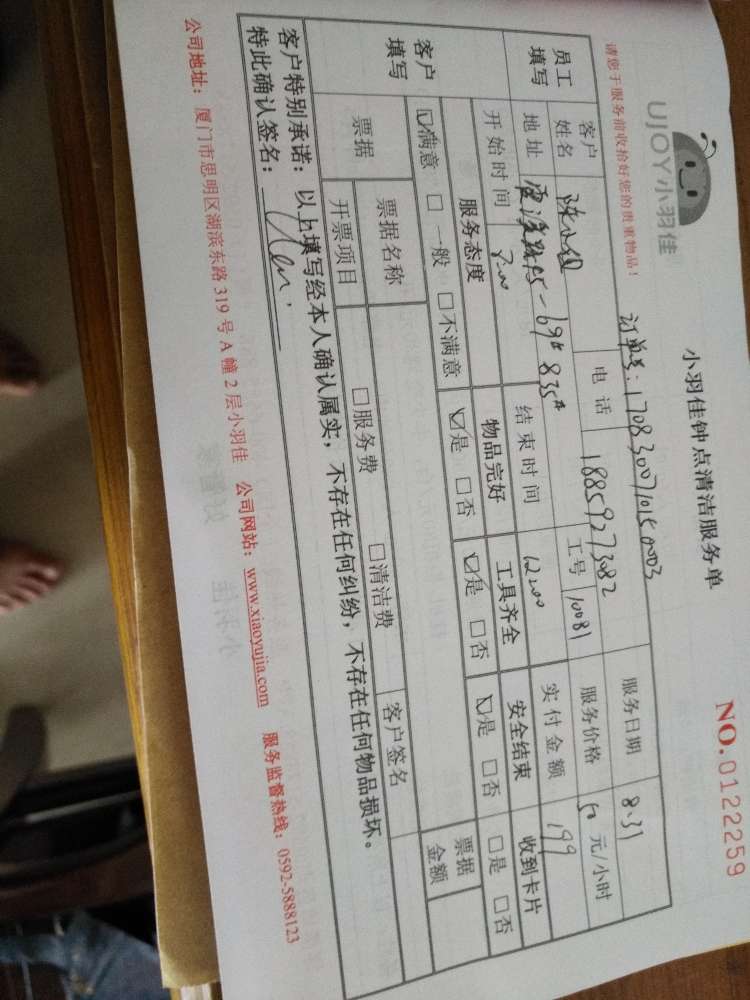 UJOY小羽佳
小羽佳钟点清洁服务单
NO.0122259
请您于服务前收拾好您的贵重物品！
订单号：1708300710150003
员工填写
客户姓名 陈小姐 电话 18859273082 服务日期 8.31
工号 10081 服务价格 50 元/小时
地址 69# 835#
实付金额 199
开始时间 结束时间 12:00
客户填写
服务态度 物品完好 工具齐全 安全结束 收到卡片
☑满意 □一般 □不满意 ☑是 □否 ☑是 □否 ☑是 □否 □是 □否
票据 票据名称 □服务费 □清洁费 客户签名 票据金额
开票项目
客户特别承诺：以上填写经本人确认属实，不存在任何纠纷，不存在任何物品损坏。
特此确认签名：
公司地址：厦门市思明区湖滨东路319号A幢2层小羽佳 公司网站：www.xiaoyujia.com 服务监督热线：0592-5888123